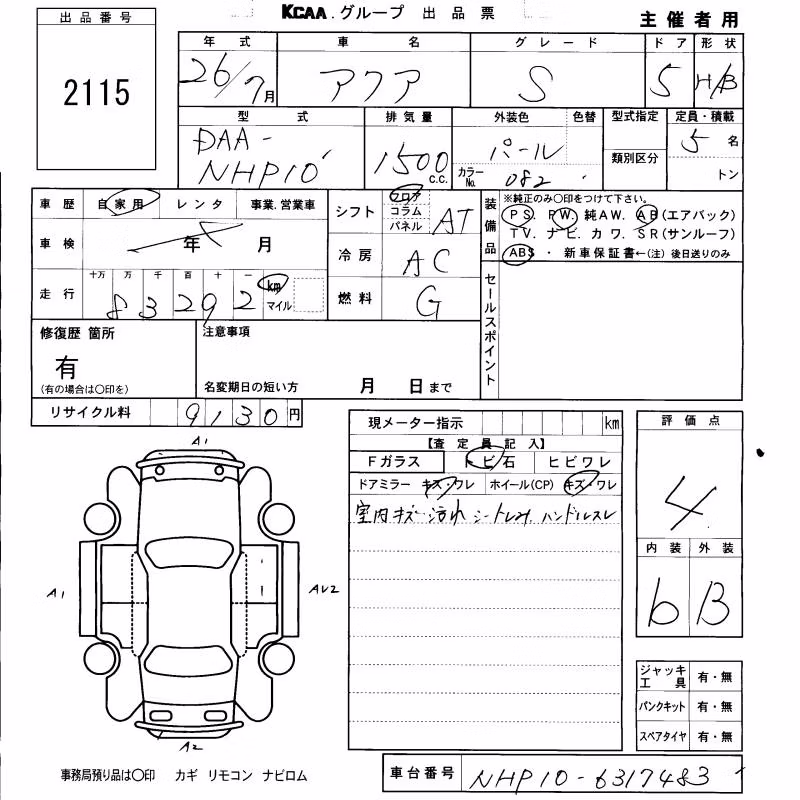 KCAA.グループ 出品票
主催者用
出品番号
2115
年式 車名 グレード ドア 形状
26/7月 アクア S 5 H/B
型式 排気量 外装色 色替 型式指定 定員・積載
DAA-NHP10 1500 c.c. パール 5名
カラーNo. 082 類別区分 トン
車歴 自家用 レンタ 事業.営業車
車検 年 月
十万 万 千 百 十 一
走行 83292 km マイル
シフト フロア コラム パネル AT
冷房 AC
燃料 G
装備品 ※純正のみ○印をつけて下さい。
PS. PW. 純AW. AB(エアバック)
TV. ナビ. カワ. SR(サンルーフ)
ABS ・ 新車保証書←(注) 後日送りのみ
セールスポイント
修復歴 箇所
有
(有の場合は○印を)
注意事項
名変期日の短い方 月 日まで
リサイクル料 9130円
現メーター指示 km
【査定員記入】
Fガラス トビ石 ヒビワレ
ドアミラー キズ・ワレ ホイール(CP) キズ・ワレ
室内キズ 汚れ シートしみ ハンドルスレ
評価点
4
内装 外装
6 B
A1
A1
AU2
A2
ジャッキ工具 有・無
パンクキット 有・無
スペアタイヤ 有・無
事務局預り品は○印 カギ リモコン ナビロム
車台番号 NHP10-6317483